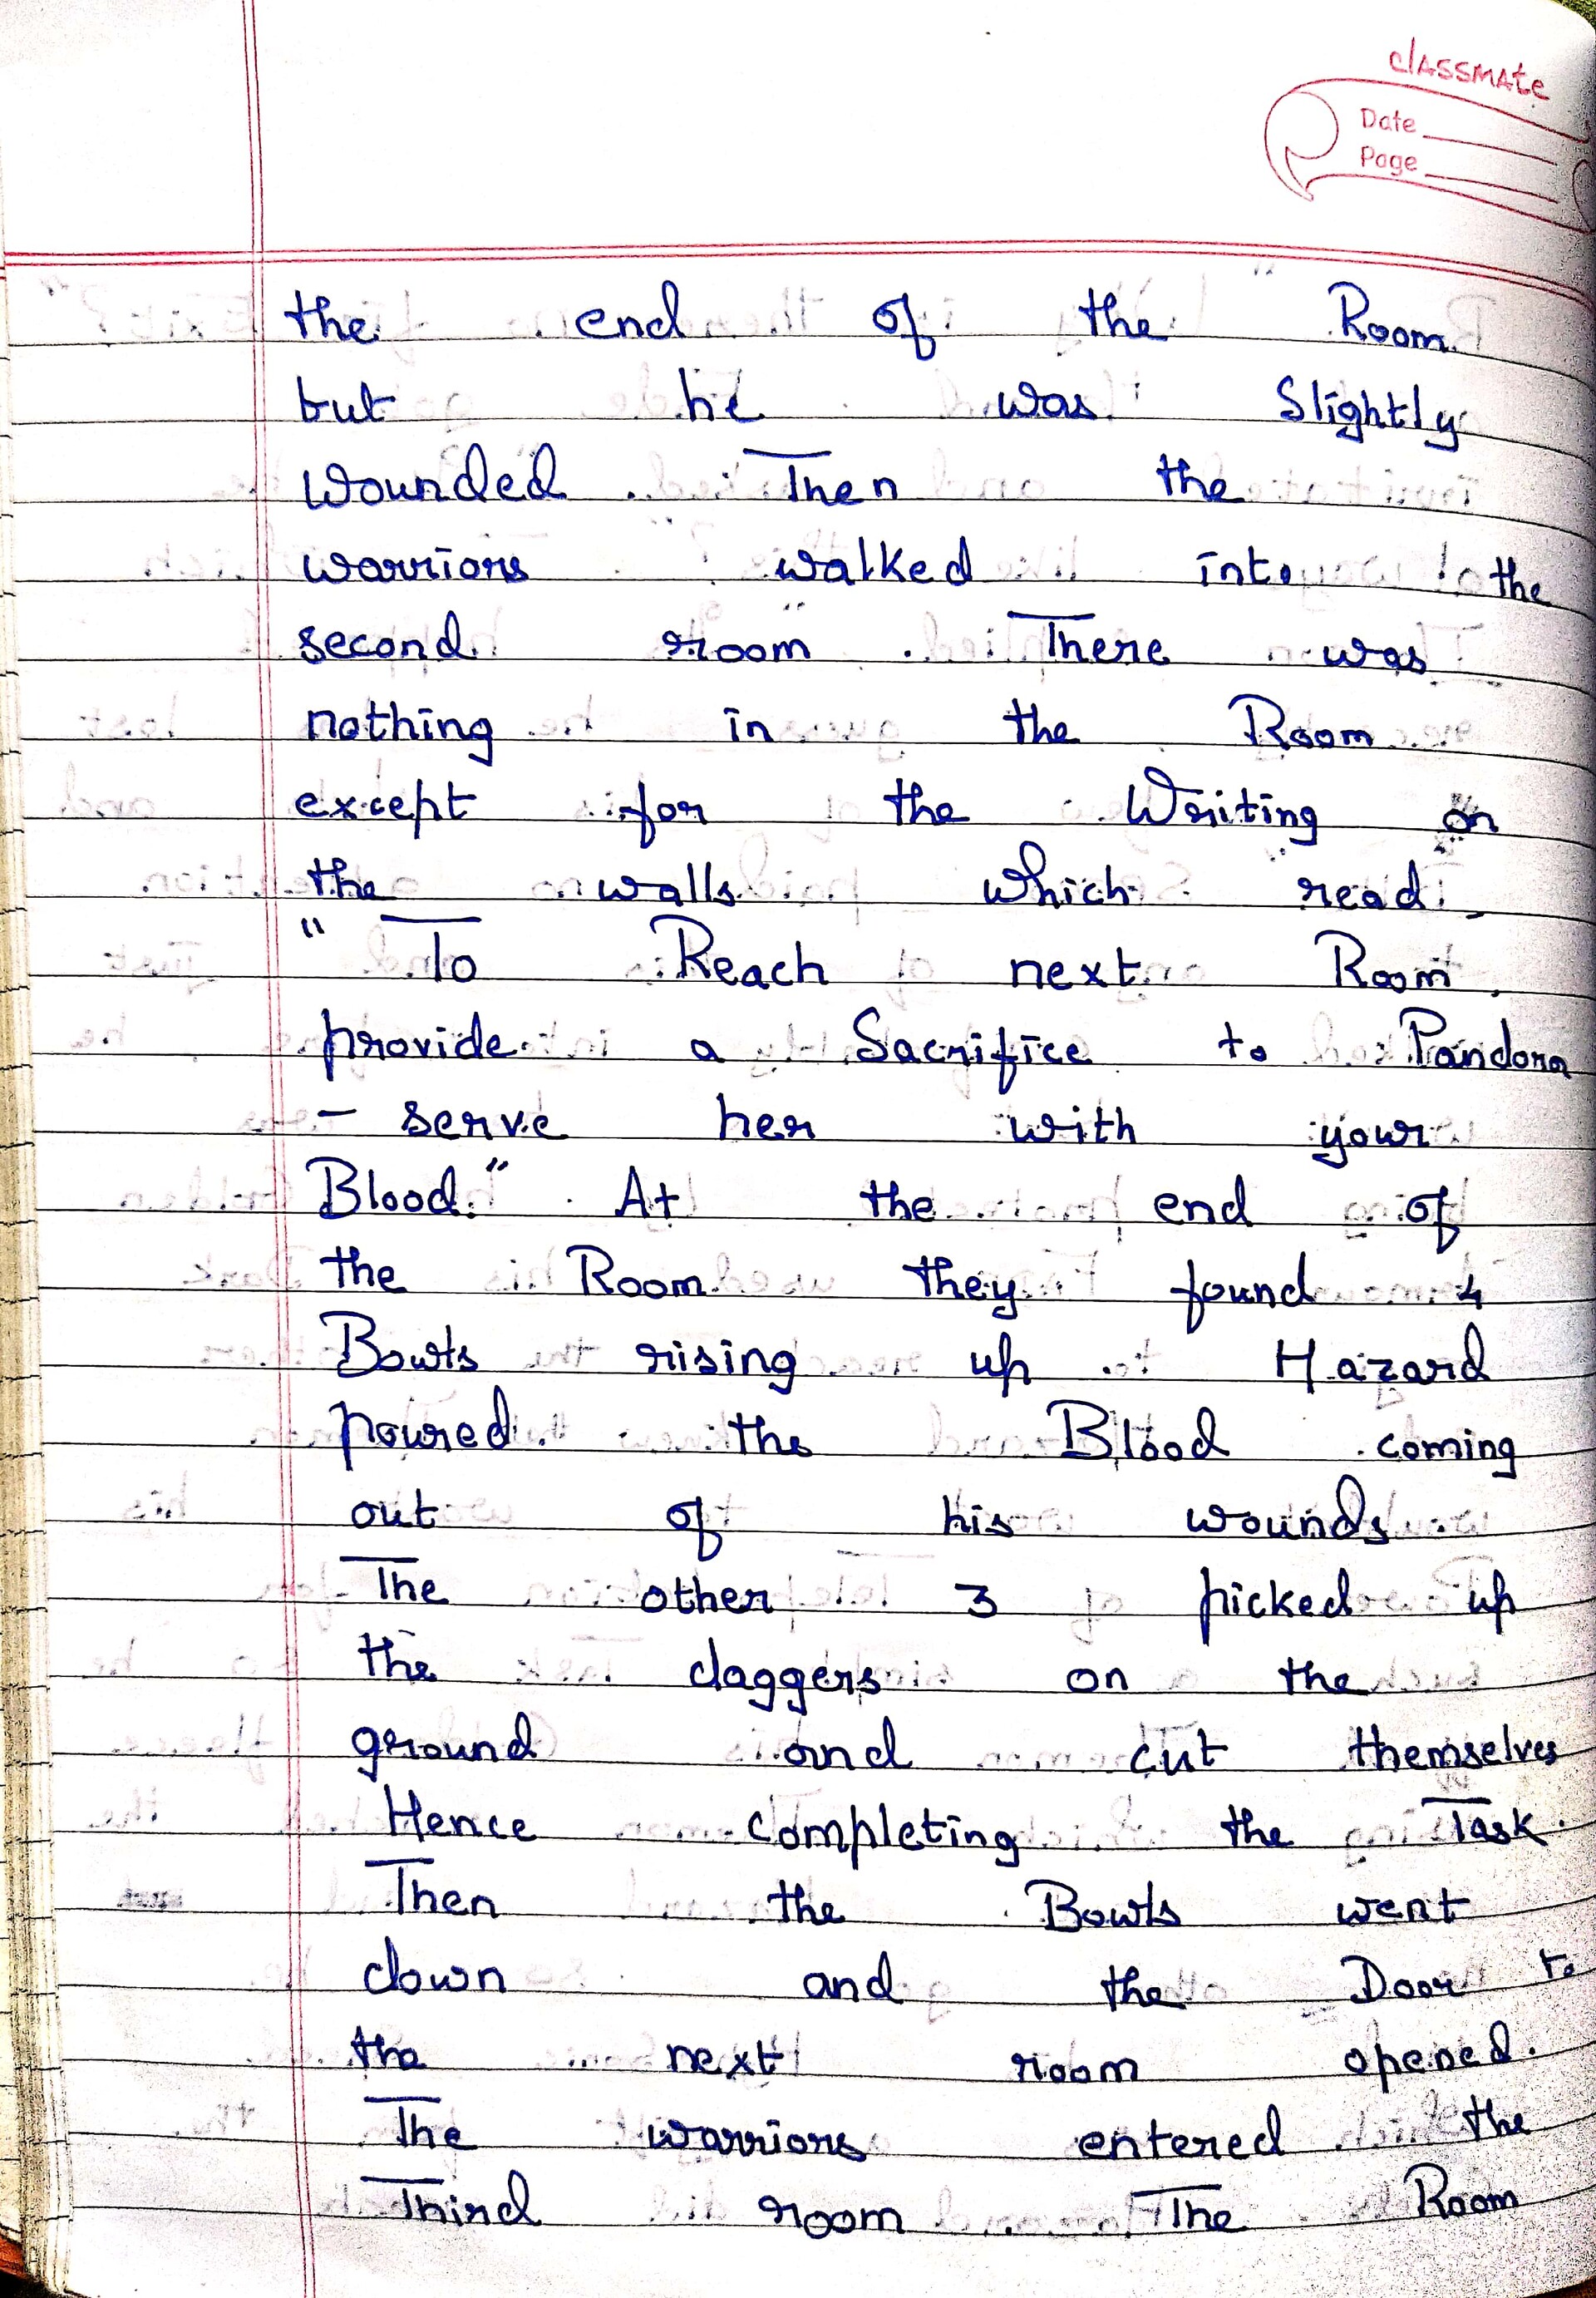 classmate
Date
Page
the end of the Room
but he was Slightly
wounded. Then the
warriors walked into the
second room. There was
nothing in the Room
except for the Writing on
the walls which read,
" To Reach next Room,
provide a Sacrifice to Pandora
- serve her with your
Blood." At the end of
the Room they found 4
Bowls rising up. Hazard
poured the Blood coming
out of his wounds.
The other 3 picked up
the daggers on the
ground and cut themselves
Hence completing the Task.
Then the Bowls went
down and the Door to
the next room opened.
The warriors entered the
Third room The Room